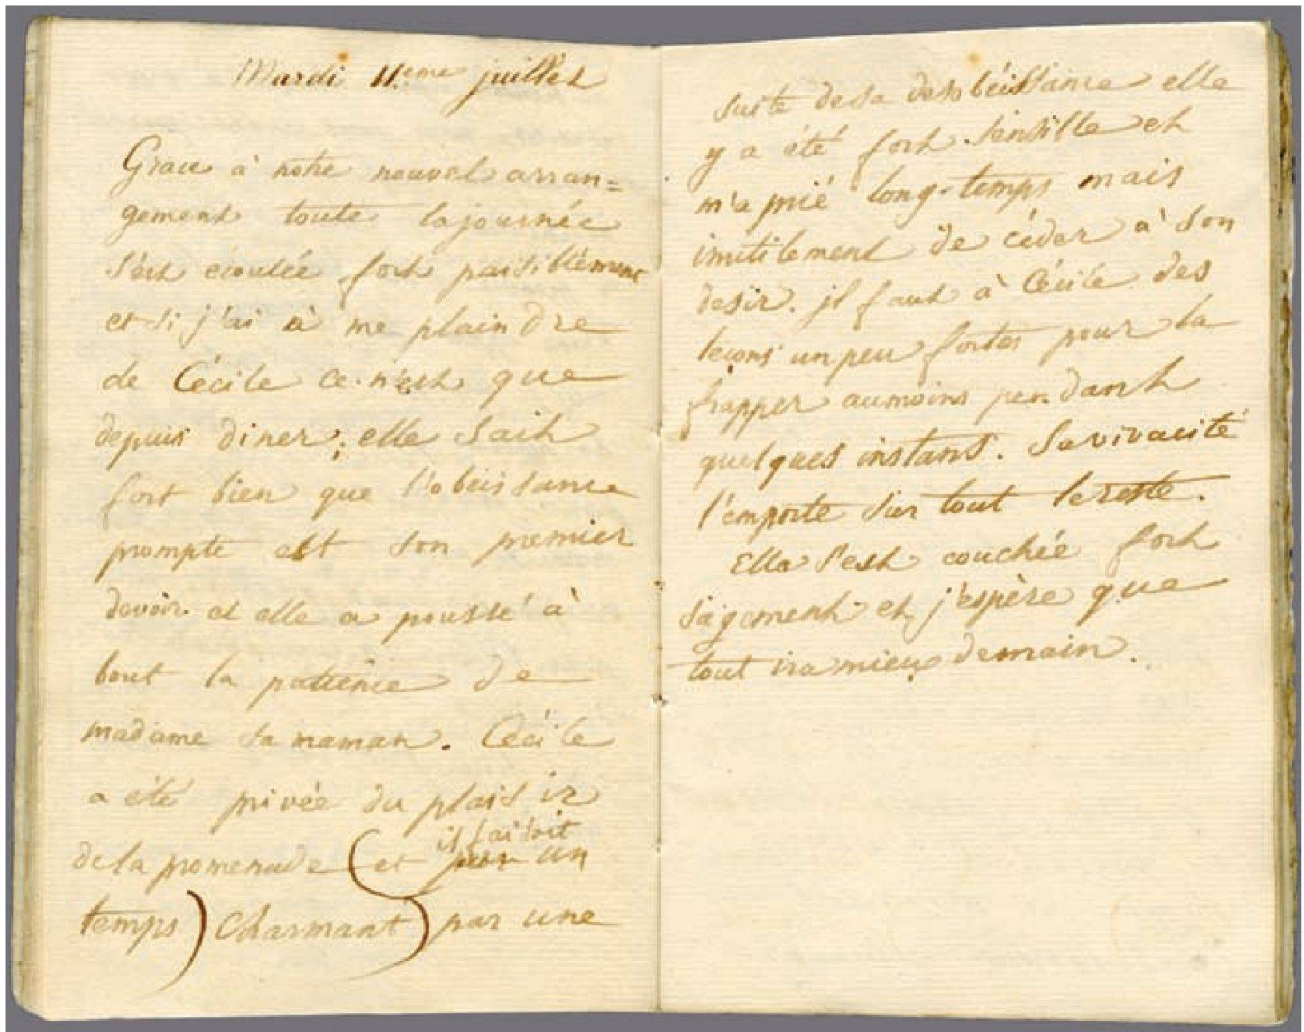 Mardi 11.eme juillet
Grace à notre nouvel arran=
gement toute la journée
s'est ecoulée fort paisiblement
et si j'ai à me plaindre
de Cécile ce n'est que
depuis diner; elle sait
fort bien que l'obeissance
prompte est son premier
devoir et elle a poussé à
bout la patience de
madame sa maman. Cécile
a été privée du plaisir
de la promenade (et il faisoit un
temps) charmant) par une
suite de sa desobéissance elle
y a été fort sensible et
m'a prié long-temps mais
inutilement de céder à son
desir. il faut à Cécile des
leçons un peu fortes pour la
frapper aumoins pendant
quelques instans. Sa vivacité
l'emporte sur tout le reste.
Elle s'est couchée fort
sagement et j'espère que
tout ira mieux demain.